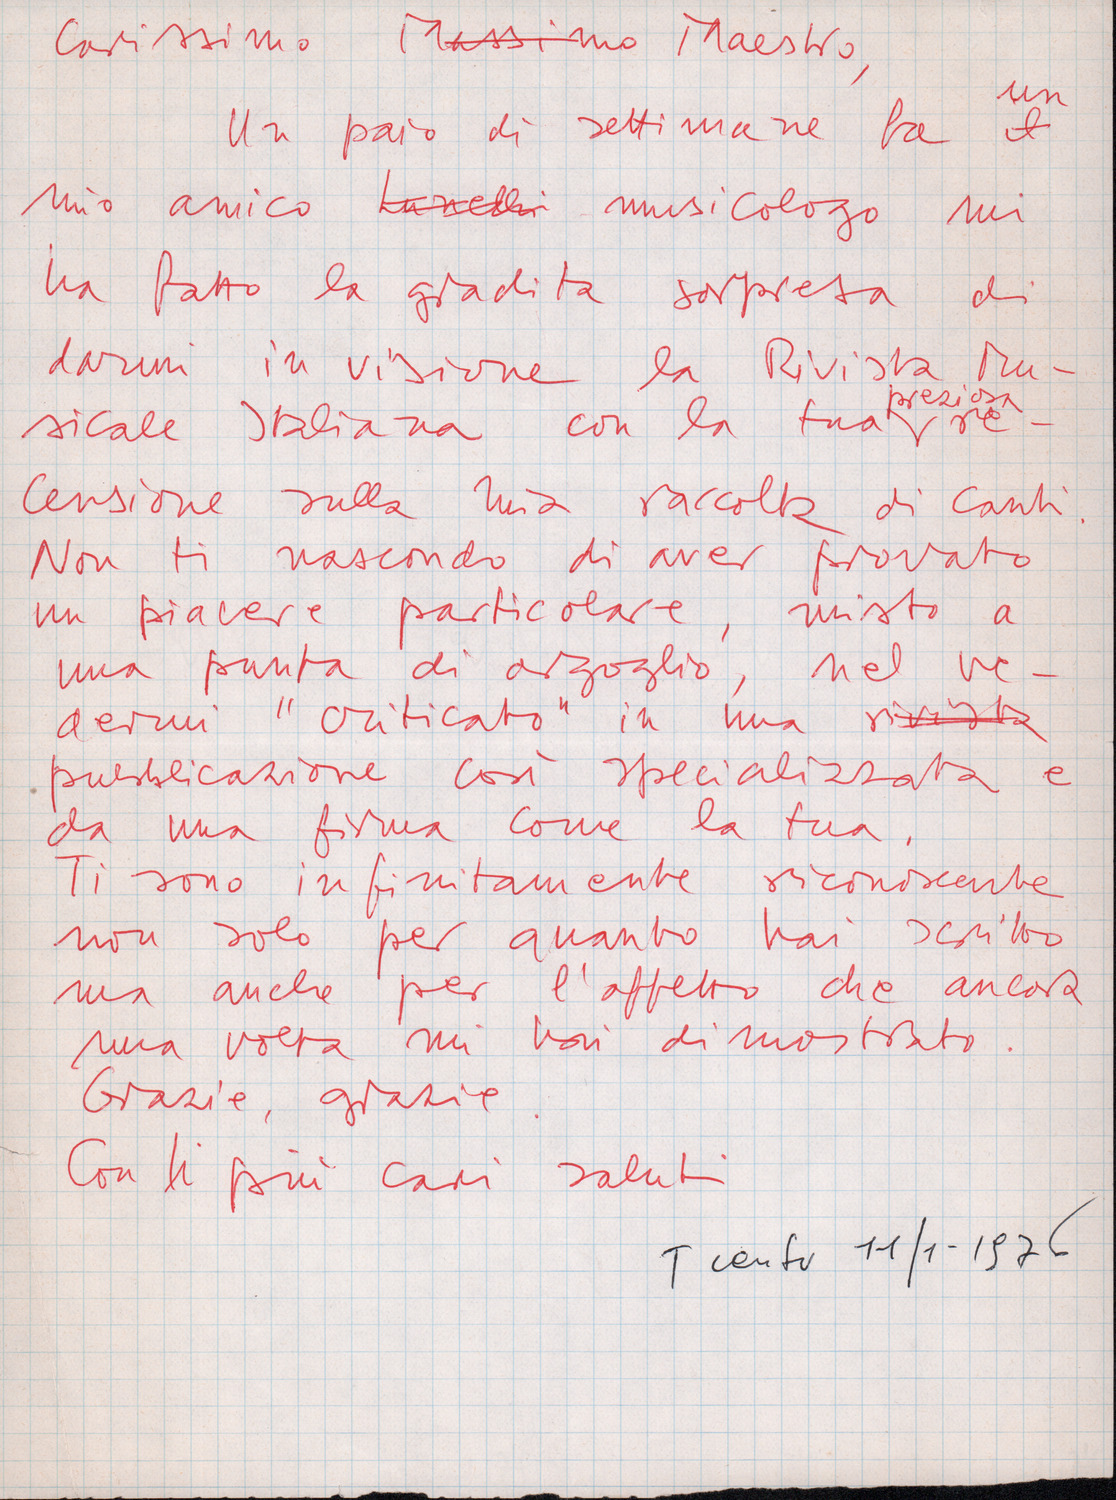 Carissimo Massimo Maestro,
Un paio di settimane fa un il
mio amico Lunelli musicologo mi
ha fatto la gradita sorpresa di
darmi in visione la Rivista Mu-
sicale Italiana con la tua preziosa re-
censione sulla mia raccolta di canti.
Non ti nascondo di aver provato
un piacere particolare, misto a
una punta di orgoglio, nel ve-
dermi "criticato" in una rivista
pubblicazione così specializzata e
da una firma come la tua.
Ti sono infinitamente riconoscente
non solo per quanto hai scritto
ma anche per l'affetto che ancora
una volta mi hai dimostrato.
Grazie, grazie.
Con li più cari saluti
Trento 11/1-1976